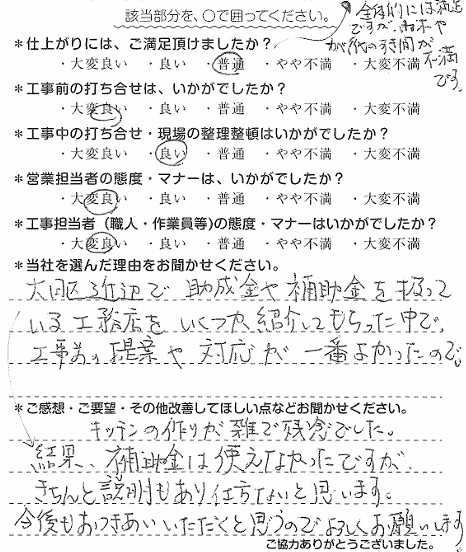 該当部分を、○で囲ってください。
全体的には満足
ですが、巾木や
が枠のすき間が
不満
です。
＊仕上がりには、ご満足頂けましたか？
・大変良い ・良い ・普通 ・やや不満 ・大変不満
＊工事前の打ち合せは、いかがでしたか？
・大変良い ・良い ・普通 ・やや不満 ・大変不満
＊工事中の打ち合せ・現場の整理整頓はいかがでしたか？
・大変良い ・良い ・普通 ・やや不満 ・大変不満
＊営業担当者の態度・マナーは、いかがでしたか？
・大変良い ・良い ・普通 ・やや不満 ・大変不満
＊工事担当者（職人・作業員等)の態度・マナーはいかがでしたか？
・大変良い ・良い ・普通 ・やや不満 ・大変不満
＊当社を選んだ理由をお聞かせください。
大田区近辺で助成金や補助金を扱って
いる工務店をいくつか紹介してもらった中で、
工事前の提案や対応が一番よかったので。
＊ご感想・ご要望・その他改善してほしい点などお聞かせください。
キッチンの作りが雑で残念でした。
結果、補助金は使えなかったですが
きちんと説明もあり仕方ないと思います。
今後もおつきあいいただくと思うのでよろしくお願いします。
ご協力ありがとうございました。